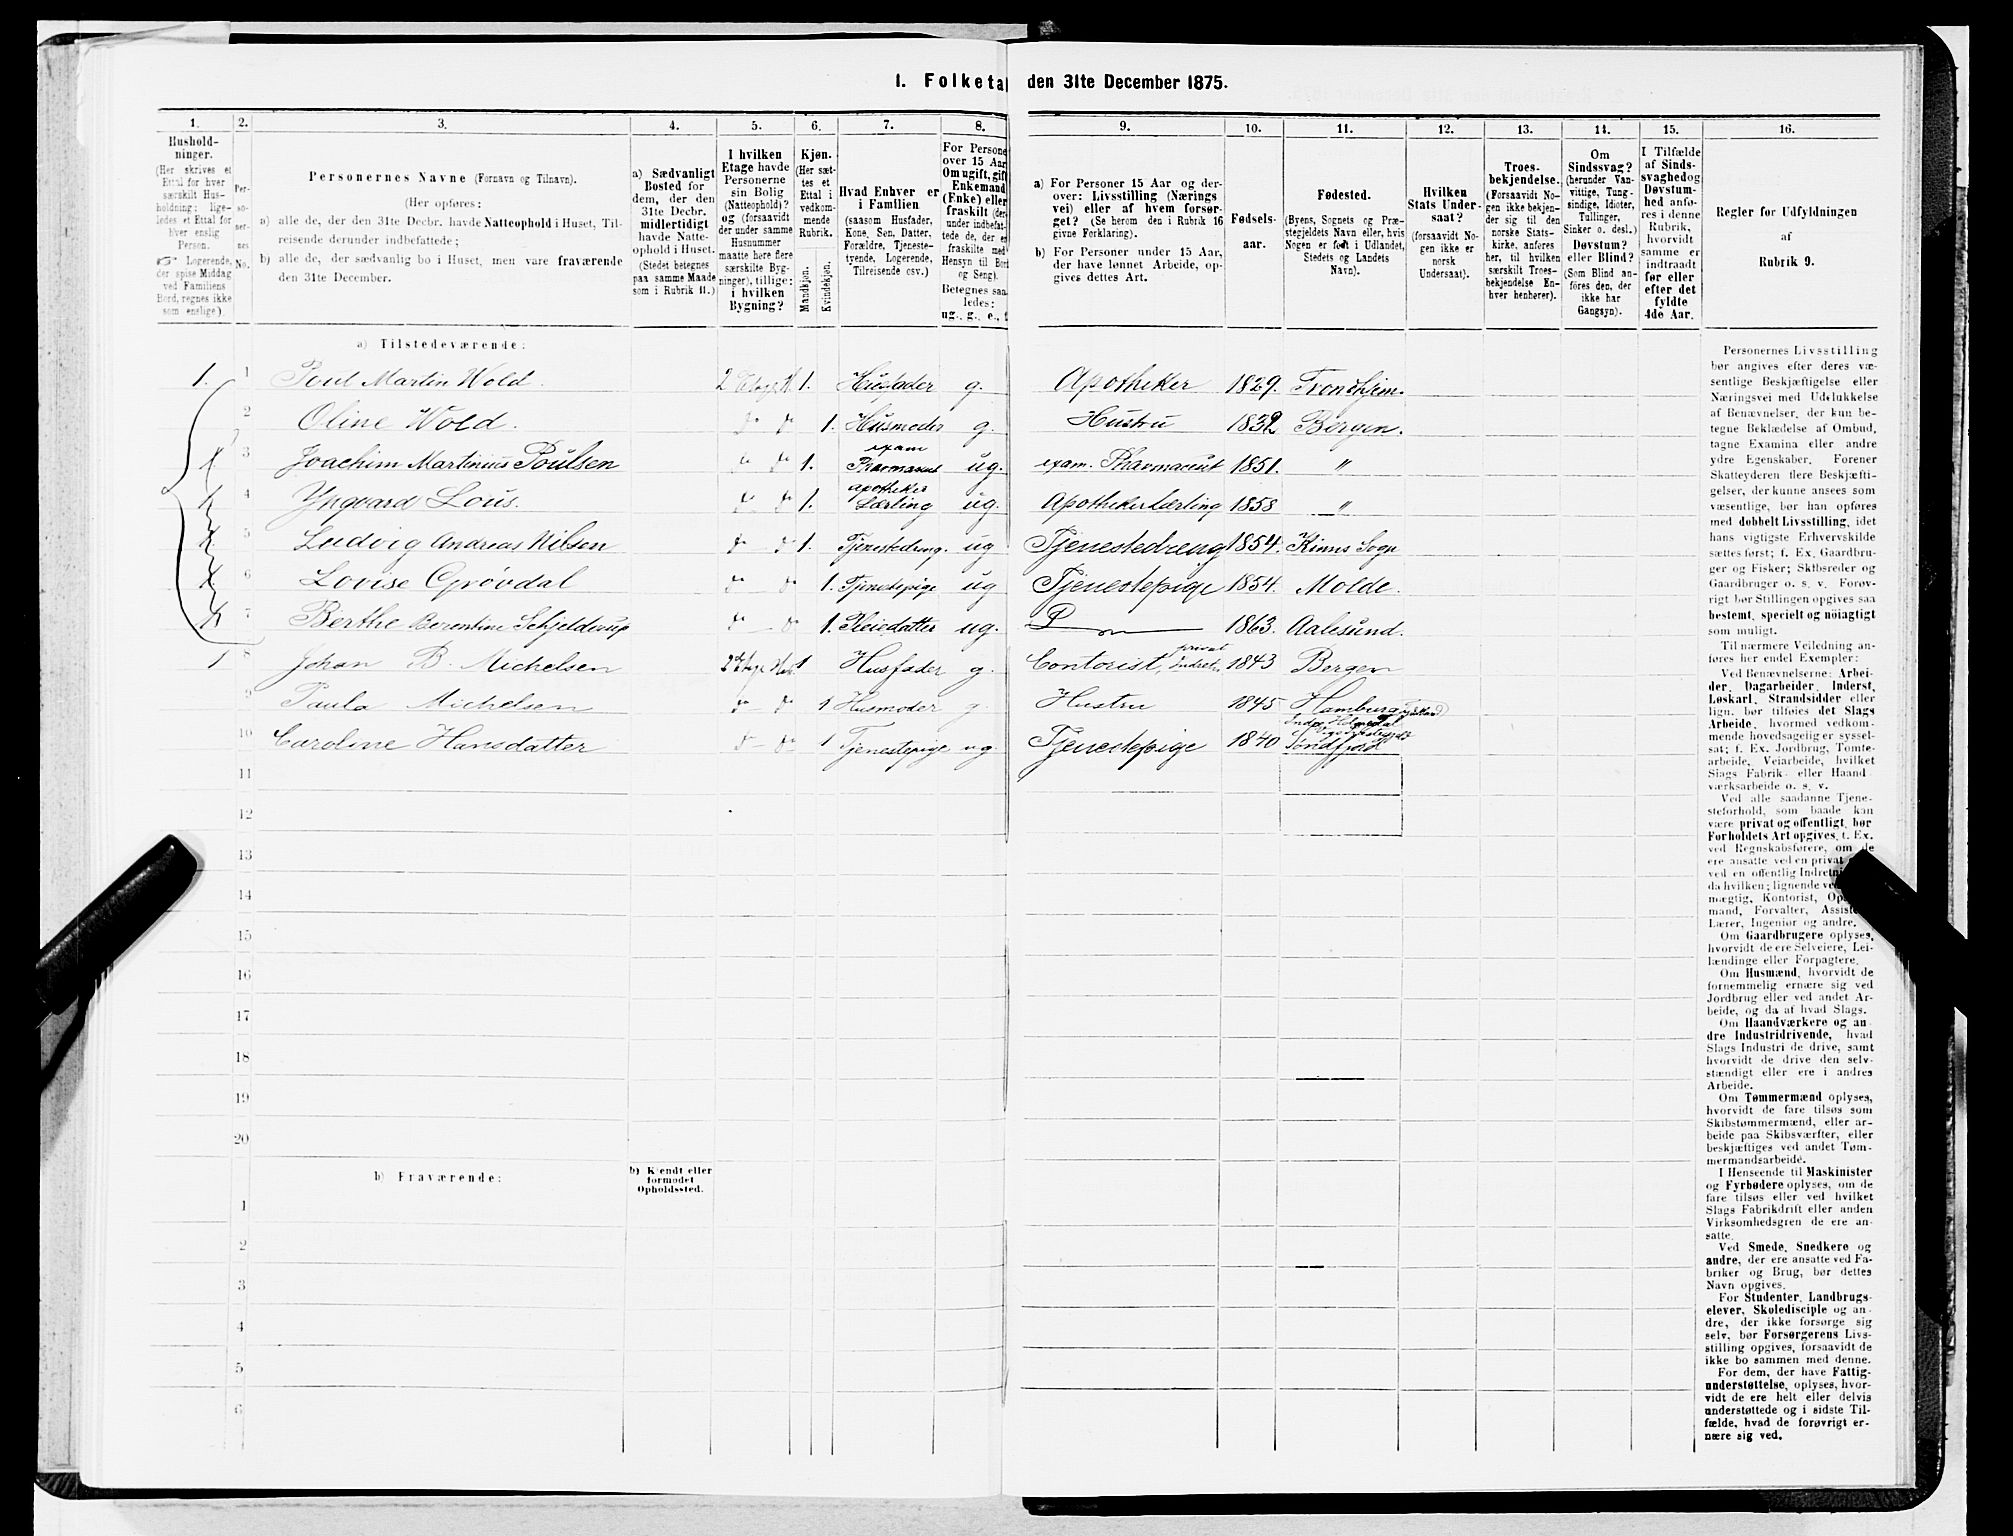 1. Folketa den 31te December 1875.
1. 2. 3. 4. 5. 6. 7. 8. 9. 10. 11. 12. 13. 14. 15. 16.
Hushold-
ninger.
(Her skrives et
Ettal for hver
særskilt Hus-
holdning; lige-
ledes et Ettal for
hver enslig
Person.
☞ Logerende,
der spise Middag
ved Familiens
Bord, regnes ikke
som enslige).
Per-
so-
ner-
nes
No.
Personernes Navne (Fornavn og Tilnavn).
(Her opføres:
a) alle de, der den 31te Decbr. havde Natteophold i Huset, Til-
reisende derunder indbefattede;
b) alle de, der sædvanlig bo i Huset, men vare fraværende
den 31te December.
a) Sædvanligt
Bosted for
dem, der den
31te Decbr.
midlertidigt
havde Natte-
ophold i Huset.
(Stedet betegnes
paa samme Maade
som i Rubrik 11.)
I hvilken
Etage havde
Personerne
sin Bolig
(Natteophold)?
og (forsaavidt
der under samme
Husnummer
maatte høre flere
særskilte Byg-
ninger), tillige:
i hvilken
Bygning?
Kjøn.
(Her sæt-
tes et
Ettal i
vedkom-
mende
Rubrik.
Mandkjøn.
Kvindekjøn.
Hvad Enhver er
i Familien
(saasom Husfader,
Kone, Søn, Datter,
Forældre, Tjeneste-
tyende, Logerende,
Tilreisende csv.)
For Persone
over 15 Aar
Om ugift, gift
Enkemand
(Enke) eller
fraskilt (der-
under indbefat-
tede de, der e
fraskilte med
Hensyn til Bord
og Seng).
Betegnes saa
ledes:
ug., g., e., f
a) For Personer 15 Aar og der-
over: Livsstilling (Nærings
vei) eller af hvem forsør-
get? (Se herom den i Rubrik 16
givne Forklaring).
b) For Personer under 15 Aar,
der have lønnet Arbeide, op-
gives dettes Art.
Fødsels-
aar.
Fødested.
(Byens, Sognets og Præ-
stegjeldets Navn eller, hvis
Nogen er født i Udlandet,
Stedets og Landets
Navn).
Hvilken
Stats Under-
saat?
(forsaavidt No-
gen ikke er
norsk
Undersaat).
Troes-
bekjendelse.
(Forsaavidt No-
gen ikke bekjen-
der sig til den
norske Stats-
kirke, anføres
her, til hvilken
særskilt Troes-
bekjendelse En-
hver henhører).
Om
Sindssvag?
(herunder Van-
vittige, Tung-
sindige, Idioter,
Tullinger,
Sinker o. desl.).
Døvstum?
eller Blind?
(Som Blind an-
føres den, der
ikke har
Gangsyn).
I Tilfælde
af Sinds-
svaghed og
Døvstum-
hed anfø-
res i denne
Rubrik,
hvorvidt
samme er
indtraadt
før eller
efter det
fyldte
4de Aar.
Regler for Udfyldningen
af
Rubrik 9.
a) Tilstedeværende:
1. 1 Poul Martin Wold. 2 Etage H. 1. Husfader g. Apotheker 1829. Trondhjem.
2 Oline Wold. do do 1. Husmoder g. Hustru 1832 Bergen.
3 Joachim Martinius Poulsen do do 1. exam Pharmaceut ug. exam. Pharmaceut 1851. "
4 Yngvard Lous. do do 1. apotheker Lærling ug. Apothekerlærling 1858 "
5 Ludvig Andreas Nilsen do do 1. Tjenestedreng. ug Tjenestedreng 1854. Kinns Sogn
6 Lovise Grøvdal do do 1. Tjenestepige ug Tjenestepige 1854. Molde.
7 Berthe Berentine Schjelderup do do 1. Pleiedatter ug. 1863. Aalesund.
1 8 Johan B. Michelsen 2 Etage 1 Husfader g. Contorist, privat Indretn 1843 Bergen
9 Paula Michelsen do do 1 Husmoder g. Hustru 1845 Hamburg
10 Caroline Hansdatter do do 1 Tjenestepige ug. Tjenestepige 1840 Søndfjord
11
12
13
14
15
16
17
18
19
20
b) Fraværende:
b) Kjendt eller
formodet
Opholdssted.
1
2
3
4
5
6
Personernes Livsstilling
bør angives efter deres væ-
sentlige Beskjæftigelse eller
Næringsvei med Udelukkelse
af Benævnelser, der kun be-
tegne Beklædelse af Ombud,
tagne Examina eller andre
ydre Egenskaber. Forener
Skatteyderen flere Beskjæfti-
gelser, der kunne ansees som
væsentlige, bør han opføres
med dobbelt Livsstilling, idet
hans vigtigste Erhvervskilde
sættes først; f. Ex. Gaardbru-
ger og Fisker; Skibsreder og
Gaardbruger o. s. v. Forøv-
rigt bør Stillingen opgives saa
bestemt, specielt og nøiagtigt
som muligt.
Til nærmere Veiledning an-
føres her endel Exempler:
Ved Benævnelserne: Arbei-
der, Dagarbeider, Inderst,
Løskarl, Strandsidder eller
lign. bør tilføies det Slags
Arbeide, hvormed vedkom-
mende hovedsagelig er syssel-
sat; f. Ex. Jordbrug, Tomte-
arbeide, Veiarbeide, hvilket
Slags Fabrik- eller Haand-
værksarbeide o. s. v.
Ved alle saadanne Tjene-
steforhold, som baade kan
være privat og offentligt, bør
Forholdets Art opgives, f. Ex.
ved Regnskabsførere, om de
ere ansatte ved en privat
ved en offentlig Indretni
da hvilken; lignende ved
mægtig, Kontorist, Op
mand, Forvalter, Assist
Lærer, Ingeniør og andre.
Om Gaardbrugere oplyses,
hvorvidt de ere Selveiere, Lei-
lændinge eller Forpagtere.
Om Husmænd, hvorvidt de
fornemmelig ernære sig ved
Jordbrug eller ved andet Ar-
beide, og da af hvad Slags.
Om Haandværkere og an-
dre Industridrivende, hvad
Slags Industri de drive, samt
hvorvidt de drive den selv-
stændigt eller ere i andres
Arbeide.
Om Tømmermænd oplyses,
hvorvidt de fare tilsøs som
Skibstømmermænd, eller ar-
beide paa Skibsværfter, eller
beskjæftiges ved andet Tøm-
mermandsarbeide.
I Henseende til Maskinister
og Fyrbødere oplyses, om de
fare tilsøs eller ved hvilket
Slags Fabrikdrift eller anden
Virksomhedsgren de ere an-
satte.
Ved Smede, Snedkere og
andre, der ere ansatte ved Fa-
briker og Brug, bør dettes
Navn opgives.
For Studenter, Landbrugs-
elever, Skoledisciple og an-
dre, der ikke forsørge sig
selv, bør Forsørgerens Livs-
stilling opgives, forsaavidt de
ikke bo sammen med denne.
For dem, der have Fattig-
understøttelse, oplyses, hvor-
vidt de ere helt eller delvis
understøttede og i sidste Til-
fælde, hvad de forøvrigt er-
nære sig ved.